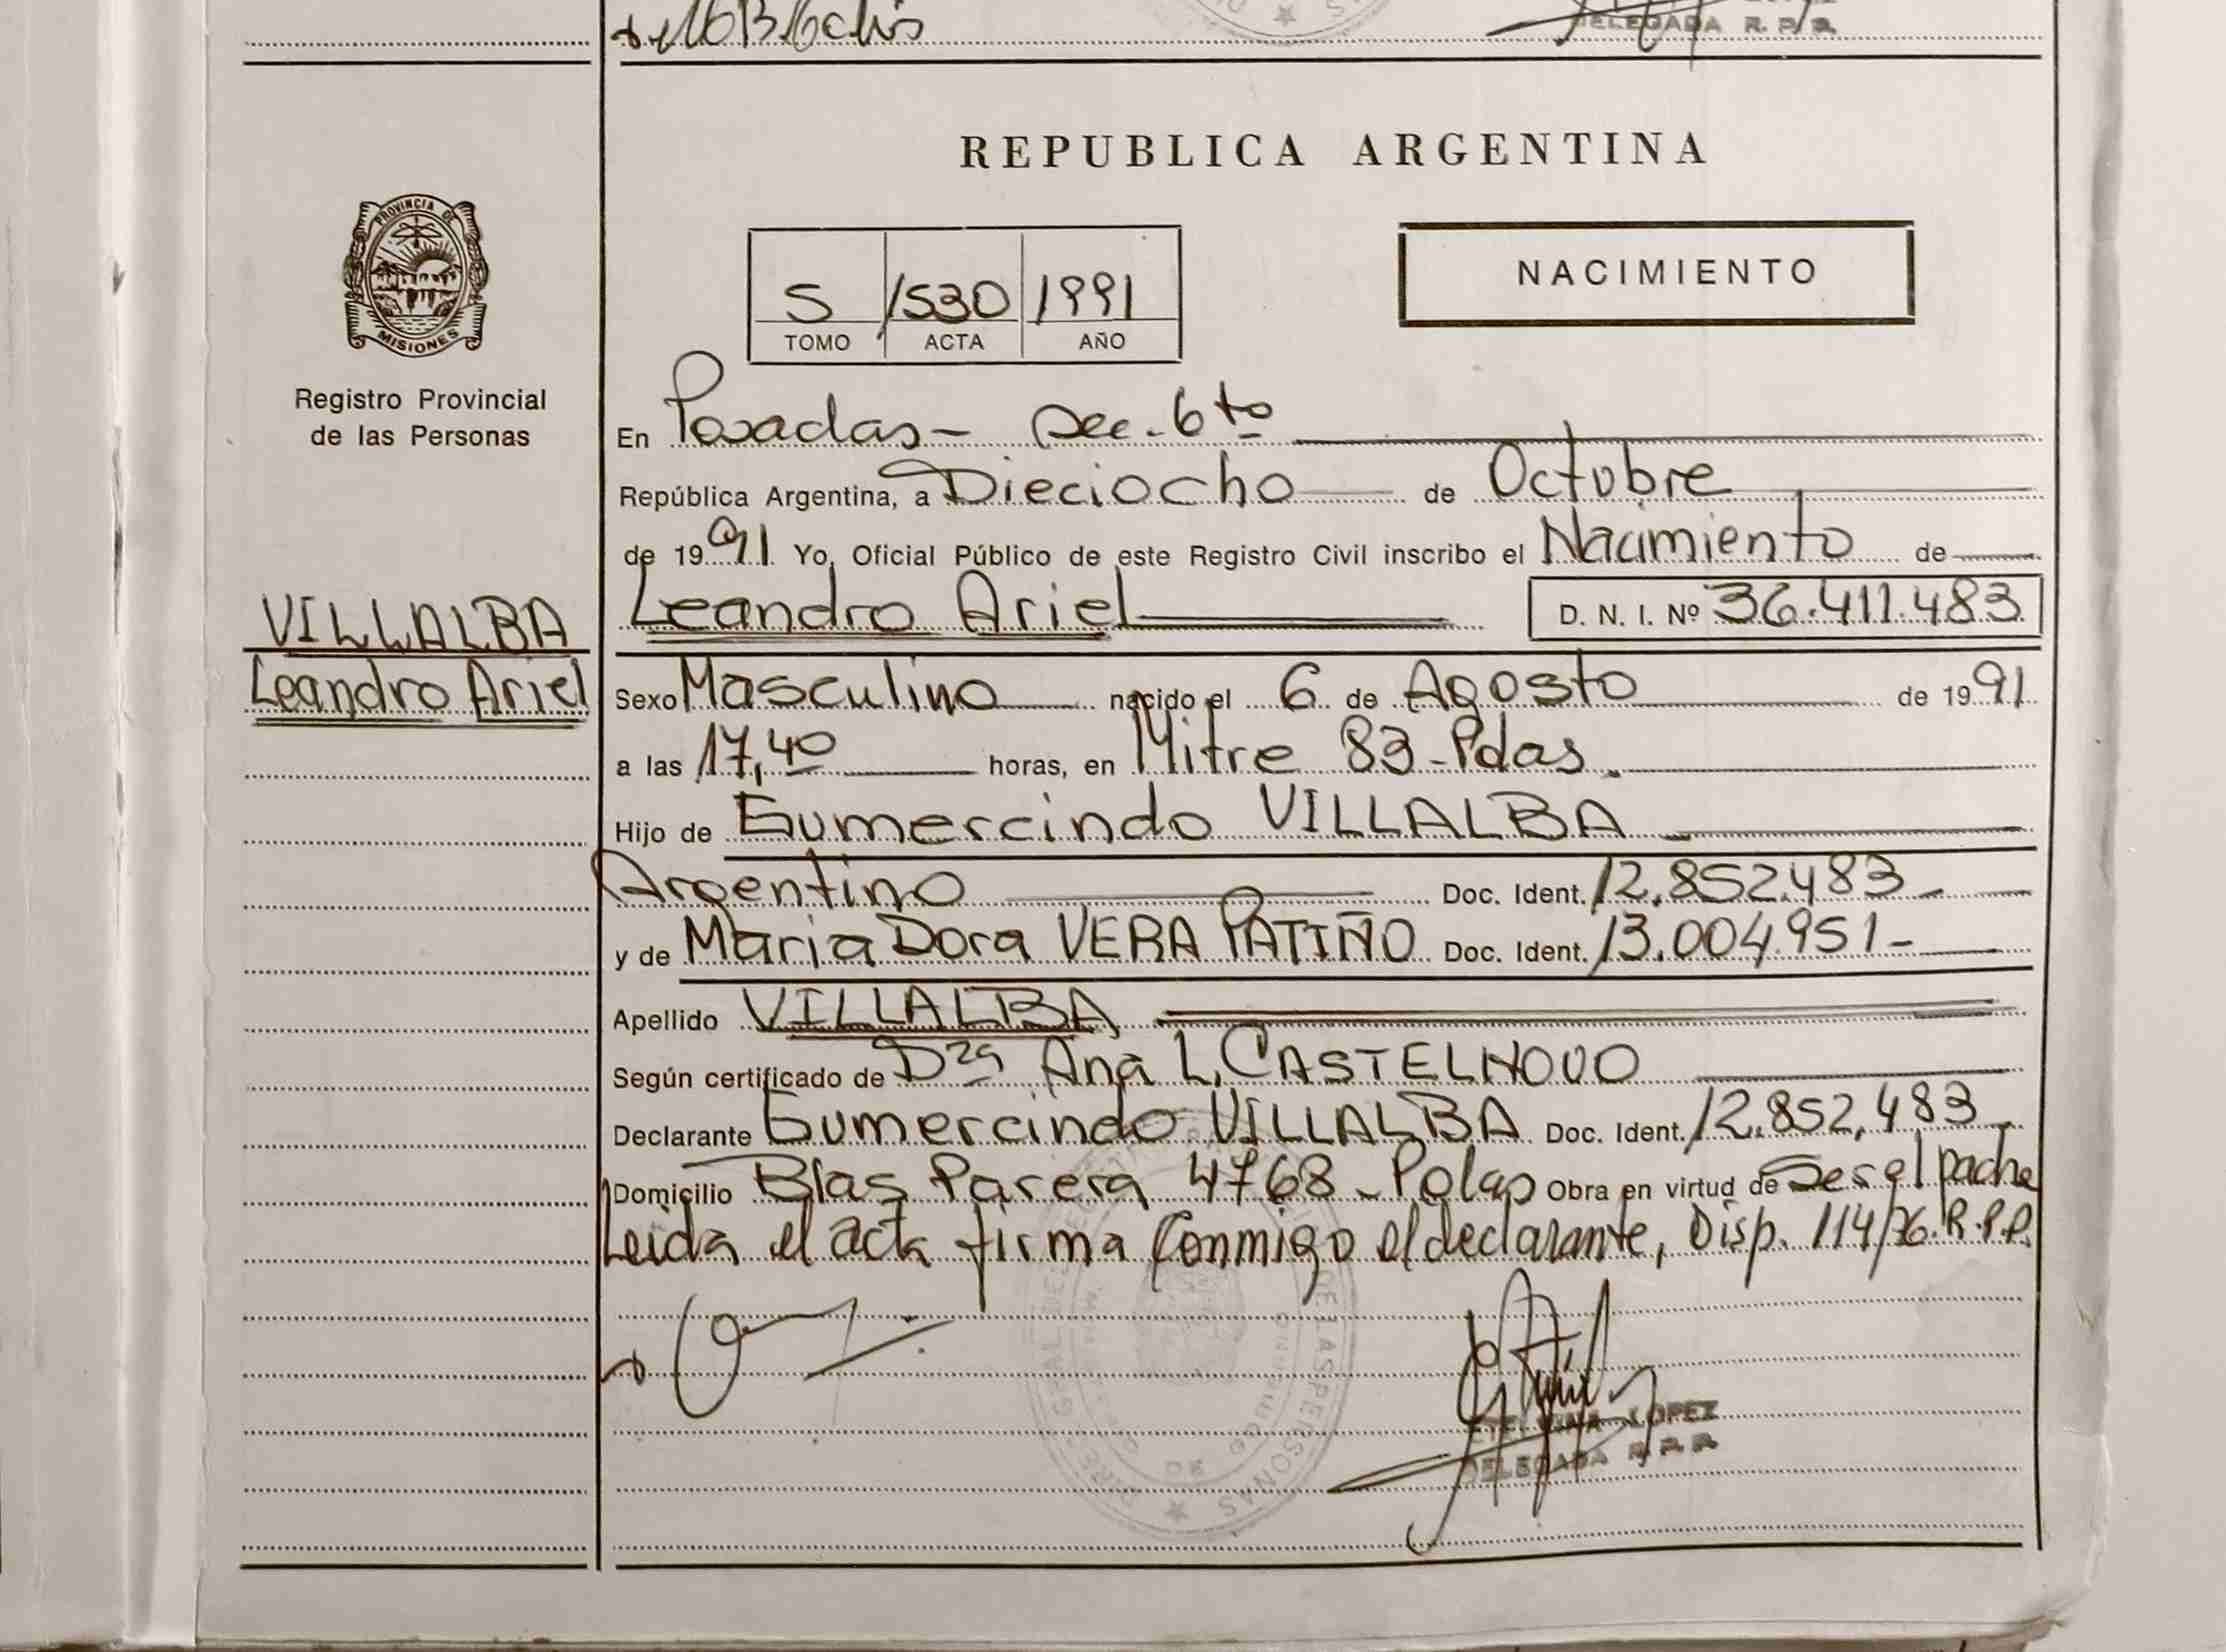 DELEGADA R. P. P.
REPUBLICA ARGENTINA
PROVINCIA DE
MISIONES
Registro Provincial
de las Personas
5 1530 1991
TOMO ACTA AÑO
NACIMIENTO
En Posadas - Sec. 6to
República Argentina, a Dieciocho de Octubre
de 1991 Yo, Oficial Público de este Registro Civil inscribo el Nacimiento de
Leandro Ariel D. N. I. Nº 36.411.483
VILLALBA
Leandro Ariel
Sexo Masculino nacido el 6 de Agosto de 1991
a las 17,40 horas, en Mitre 83 - Pdas.
Hijo de Gumercindo VILLALBA
Argentino Doc. Ident. 12.852.483 -
y de Maria Dora VERA PATIÑO Doc. Ident. 13.004.951 -
Apellido VILLALBA
Según certificado de Dra Ana L. CASTELNOVO
Declarante Gumercindo VILLALBA Doc. Ident. 12.852.483
Domicilio Blas Parera 4768 - Pdas Obra en virtud de Ser el padre
Leida el acta firma Conmigo el declarante, Disp. 114/76. R.P.P.
LOPEZ
DELEGADA R. P. P.
DE LAS PERSONAS